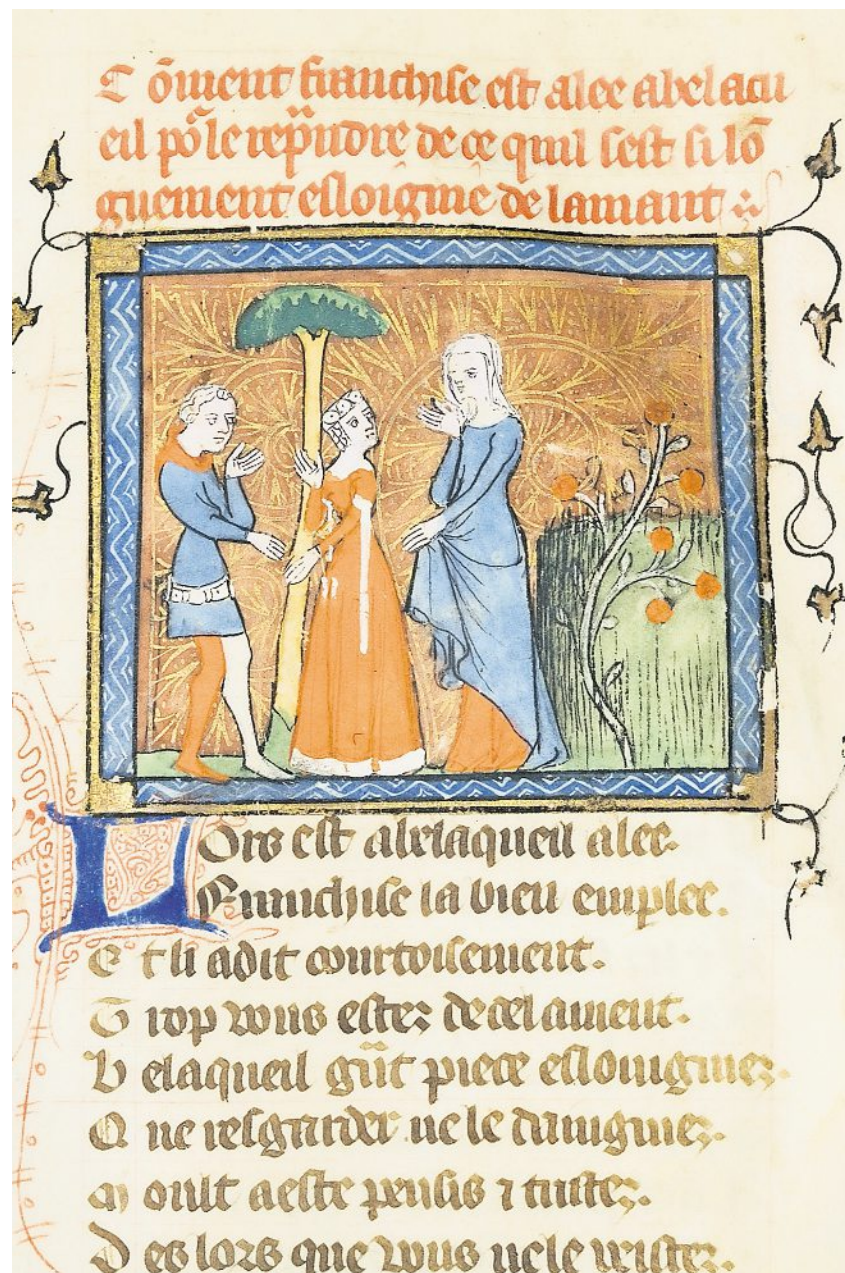 Cōment franchise est alee a bel acu
eil po᷑ le rep̄ndre de ce quil sest si lō
guement esloigine de lamant
Lors est abelaqueil alee.
Franchise la bien enparlee.
Et li a dit courtoisement.
Trop vous estez de cel ament.
Belaqueil gͣnt piece eslouigniez.
Que resgarder ne le daingniez.
Moult a este pensis ⁊ tristez.
Des lors que vous ne le veistez.